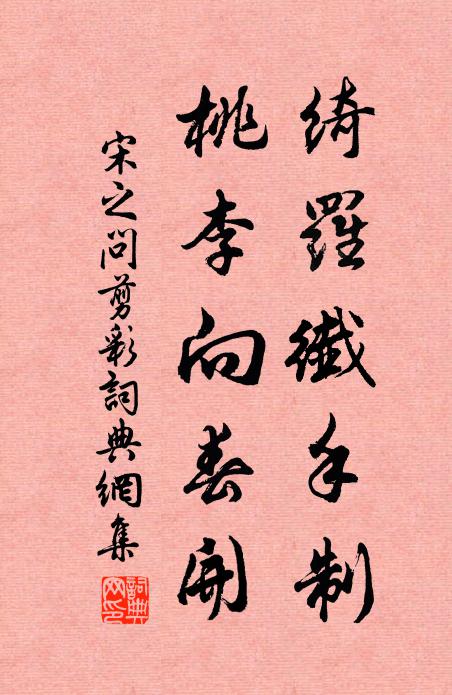 綺羅纖手制
桃李向春開
宋之問剪彩詞典網集
詞典網印